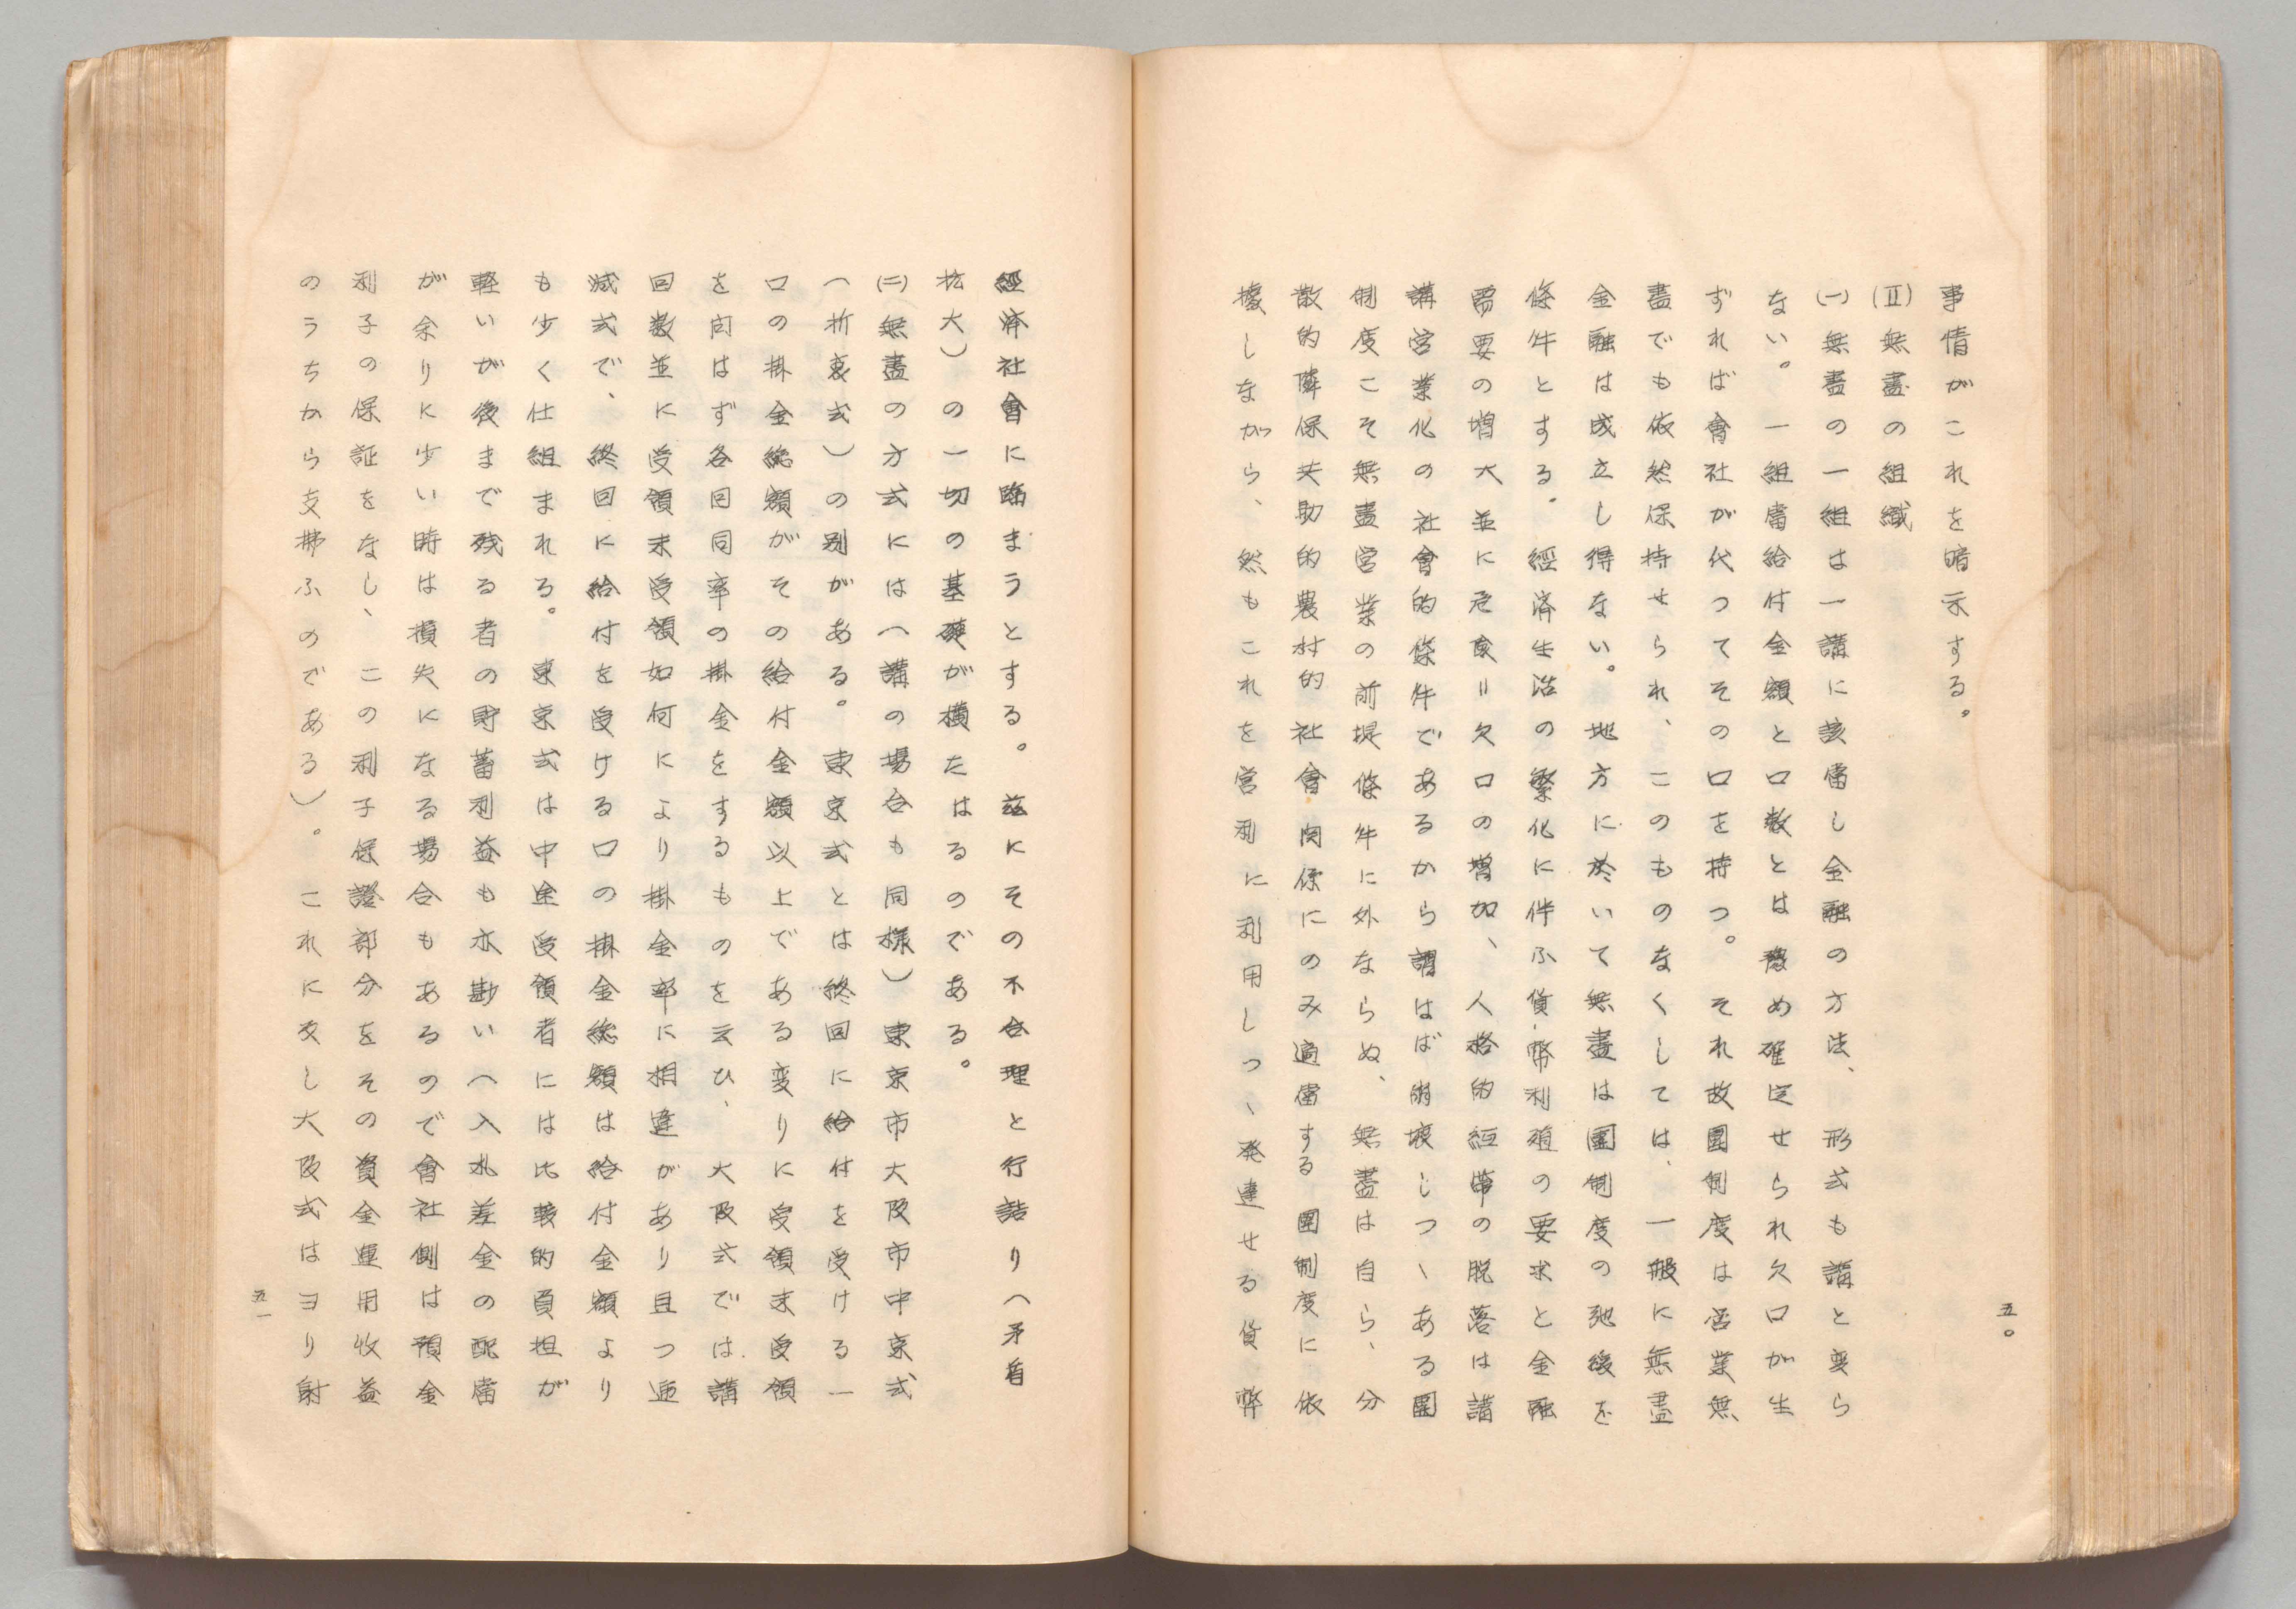 五〇
事情がこれを暗示する。
(Ⅱ)無盡の組織
(一)無盡の一組は一講に該當し金融の方法、形式も講と変ら
ない。一組當給付金額と口数とは豫め確定せられ欠口が生
ずれば會社が代つてその口を持つ。それ故團制度は営業無
盡でも依然保持せられ、このものなくしては、一般に無盡
金融は成立し得ない。地方に於いて無盡は團制度の弛緩を
條件とする。經済生活の繁化に伴ふ貨幣利殖の要求と金融
需要の増大並に危険〃欠口の増加、人格的紐帯の脱落は講
講営業化の社會的條件であるから謂はば崩壊しつゝある團
制度こそ無盡営業の前提條件に外ならぬ、無盡は自ら、分
散的隣保共助的農村的社會関係にのみ適當する團制度に依
據しながら、然もこれを営利に利用しつゝ発達せる貨幣
經済社會に臨まうとする。茲にその不合理と行詰り(矛盾
拡大)の一切の基礎が横たはるのである。
(二)無盡の方式には(講の場合も同様)東京市大阪市中京式
(折衷式)の別がある。東京式とは終回に給付を受ける一
口の掛金総額がその給付金額以上である変りに受領未受領
を向はず各回同率の掛金をするものを云ひ、大阪式では講
回数並に受領未受領如何により掛金率に相違があり且つ逓
減式で、終回に給付を受ける口の掛金総額は給付金額より
も少く仕組まれる。東京式は中途受領者には比較的負担が
軽いが後まで残る者の貯蓄利益も亦尠い(入札差金の配當
が余りに少い時は損失になる場合もあるので會社側は預金
利子の保証をなし、この利子保證部分をその資金運用收益
のうちから支拂ふのである)。これに反し大阪式はヨリ射
五一